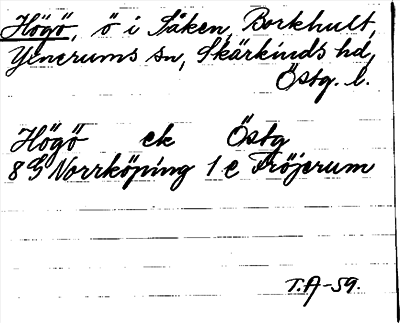 Högö, ö i Såken, Borkhult,
Yxnerums sn, Skärkinds hd,
Östg. l.
Högö ek Östg
8G Norrköping 1 e Fröjerum
T.A-59.